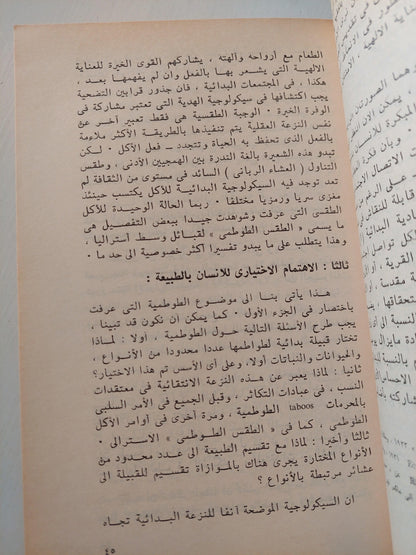 الطعام مع أرواحه وآلهته ، يشاركهم القوى الخيرة للعناية
الالهية التى يشعر بها بالفعل وان لم يفهمها بعد ،
هكذا ، فى المجتمعات البدائية ، فان جذور قرابين التضحية
يجب اكتشافها فى سيكولوجية الهدية التى تعتبر مشاركة فى
الوفرة الخيرة . الوجبة الطقسية هى فقط تعبير آخر عن
نفس النزعة العقلية يتم تنفيذها بالطريقة الأكثر ملاءمة
بالفعل الذى تحفظ به الحياة وتتجدد ـ فعل الأكل . لكن
تبدو هذه الشعيرة بالغة الندرة بين الهمجيين الأدنى ، وطقس
التناول ( العشاء الربانى ) السائد فى مستوى من الثقافة لم
تعد توجد فيه السيكولوجية البدائية للأكل يكتسب حينئذ
مغزى سريا ورمزيا مختلفا . ربما الحالة الوحيدة للأكل
الطقسى التى عرفت وشوهدت جيدا ببعض التفصيل هى
ما يسمى « الطقس الطوطمى » لقبائل وسط أستراليا ،
وهذا يتطلب على ما يبدو تفسيرا أكثر خصوصية الى حد ما .
ثالثا : الاهتمام الاختيارى للانسان بالطبيعة :
هذا يأتى بنا الى موضوع الطوطمية التى عرفت
باختصار فى الجزء الأول . كما يمكن ان نكون قد تبينا ،
يجب طرح الأسئلة التالية حول الطوطمية ، أولا : لماذا
تختار قبيلة بدائية لطواطمها عددا محدودا من الأنواع ،
والحيوانات والنباتات أولا، وعلى أى الأسس تم هذا الاختيار؟
ثانيا : لماذا يعبر عن هذه النزعة الانتقائية فى معتقدات
النسب ، فى عبادات التكاثر ، وقبل الجميع فى الأمر السلبى
بالمحرمات taboos الطوطمية ، ومرة أخرى فى أوامر الأكل
الطوطمى ، كما فى « الطقس الطوطمى » الاسترالى .
ثالثا وأخيرا : لماذا مع تقسيم الطبيعة الى عدد محدود من
الأنواع المختارة يجرى هناك بالموازاة تقسيم للقبيلة الى
عشائر مرتبطة بالأنواع ؟
ان السيكولوجية الموضحة آنفا للنزعة البدائية تجاه
٤٥